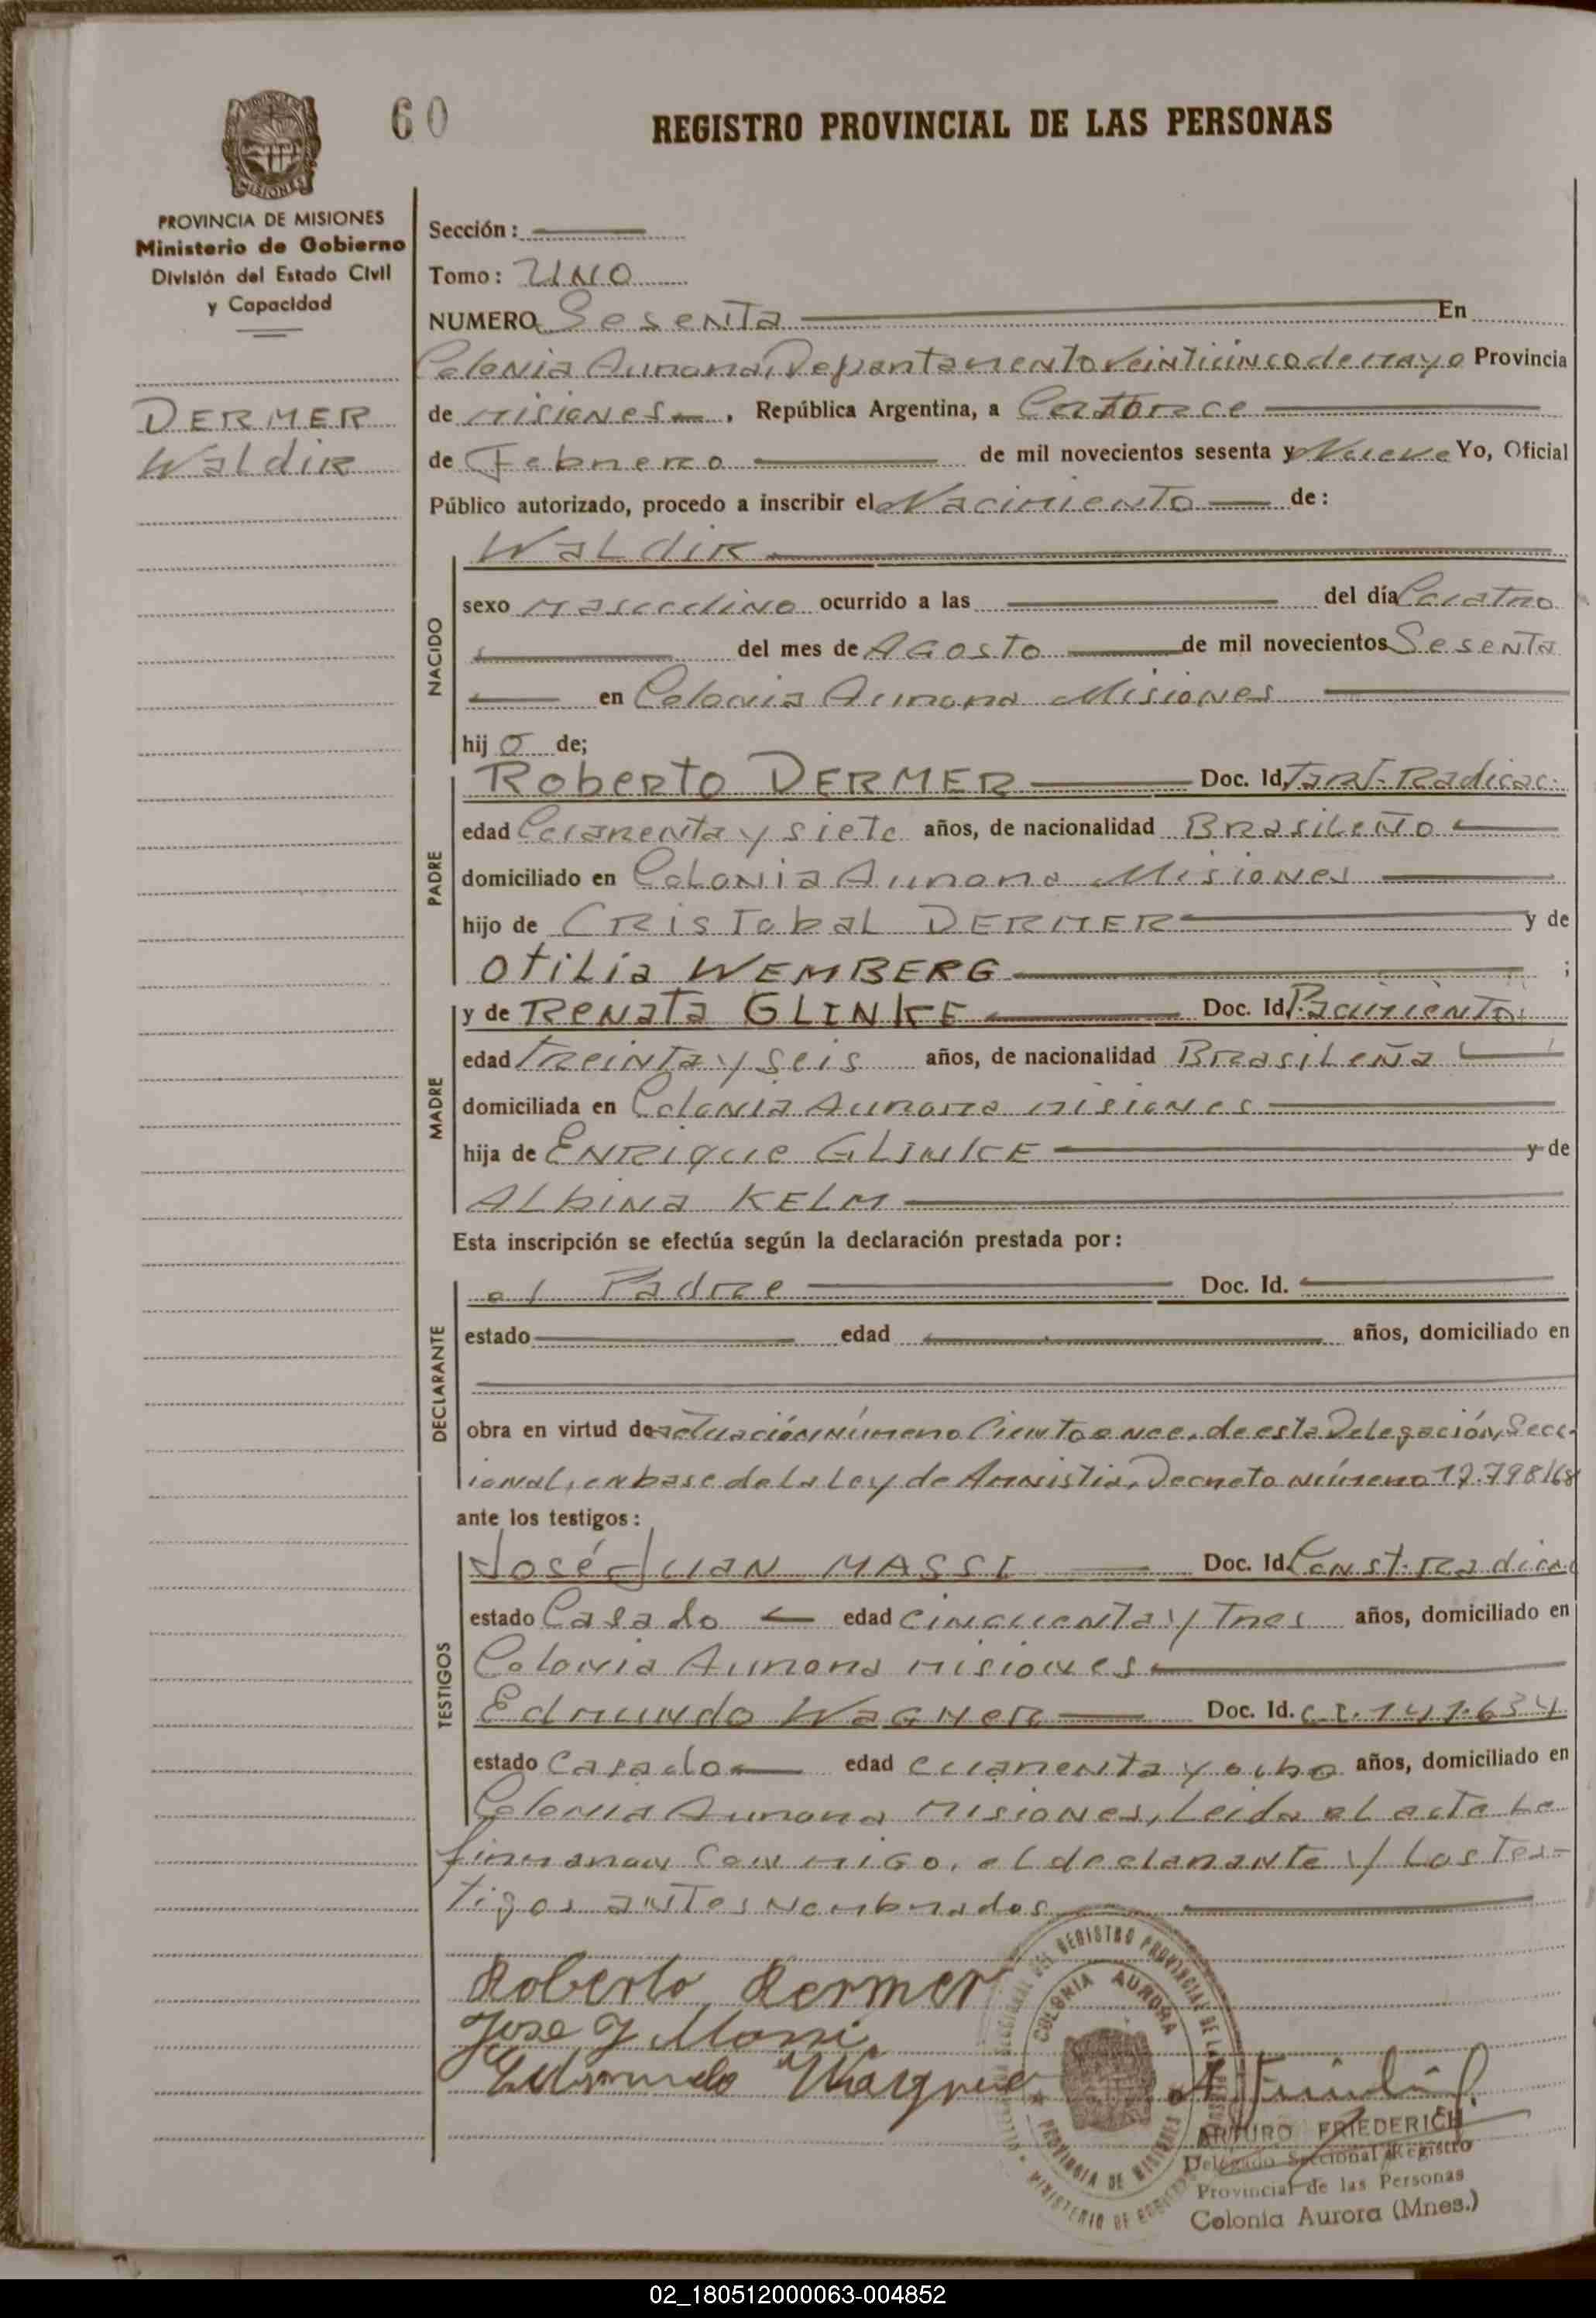 60
REGISTRO PROVINCIAL DE LAS PERSONAS
MISIONES
PROVINCIA DE MISIONES
Ministerio de Gobierno
División del Estado Civil
y Capacidad
DERMER
Waldir
Sección:
Tomo: UNO
NUMERO Sesenta En
Colonia Aurora, Departamento Veinticinco de mayo Provincia
de misiones, República Argentina, a Catorce
de Febrero de mil novecientos sesenta y Nueve Yo, Oficial
Público autorizado, procedo a inscribir el Nacimiento de:
NACIDO
Waldir
sexo Masculino ocurrido a las del día Cuatro
del mes de Agosto de mil novecientos Sesenta
en Colonia Aurora Misiones
hijo de;
PADRE
Roberto DERMER Doc. Id. Tarj. Radicac.
edad Cuarenta y siete años, de nacionalidad Brasileño
domiciliado en Colonia Aurora Misiones
hijo de CRISTobal DERMER y de
Otilia WEMBERG ;
MADRE
y de Renata GLINKE Doc. Id. P. acimiento
edad treinta y seis años, de nacionalidad Brasileña
domiciliada en Colonia Aurora misiones
hija de ENRique GLINKE y de
Albina KELM
Esta inscripción se efectúa según la declaración prestada por:
DECLARANTE
el Padre Doc. Id.
estado edad años, domiciliado en
obra en virtud de actuación número Ciento once, de esta Delegación, Secc-
ional, en base de la Ley de Amnistia, Decreto número 17.798/68
ante los testigos:
TESTIGOS
José Juan MASSI Doc. Id. Const. Radica.
estado Casado edad cincuenta y Tres años, domiciliado en
Colonia Aurora misiones
Edmundo WAGNER Doc. Id. C.I. 141.634
estado Casado edad cuarenta y ocho años, domiciliado en
Colonia Aurora Misiones, Leida el acta la
firmaran conmigo, el declarante y Los Tes-
tigos antes nombrados
Roberto Dermer
Jose J Massi
Edmundo Wagner
COLONIA AURORA
PROVINCIA DE MISIONES
ARTURO FRIEDERICH
Delegado Seccional Registro
Provincial de las Personas
Colonia Aurora (Mnes.)
02_180512000063-004852